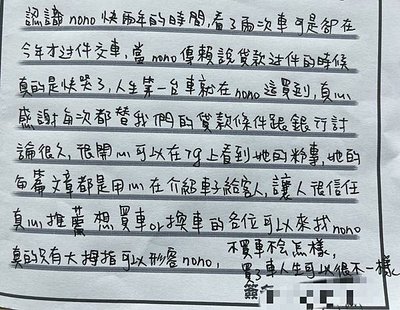 認識nono快兩年的時間,看了兩次車可是卻在
今年才过件交車,當nono傳賴說貸款过件的時候
真的是快哭了,人生第一台車就在nono這買到,真心
感謝每次都替我們的貸款條件跟銀行討
論很久,很開心可以在Ig上看到她的粉專,她的
每篇文章都是用心在介紹車子給客人,讓人很信任
真心推薦想買車or換車的各位可以來找nono
真的只有大拇指可以形容nono,
不買車不会怎樣,
買了車人生可以很不一樣
簽